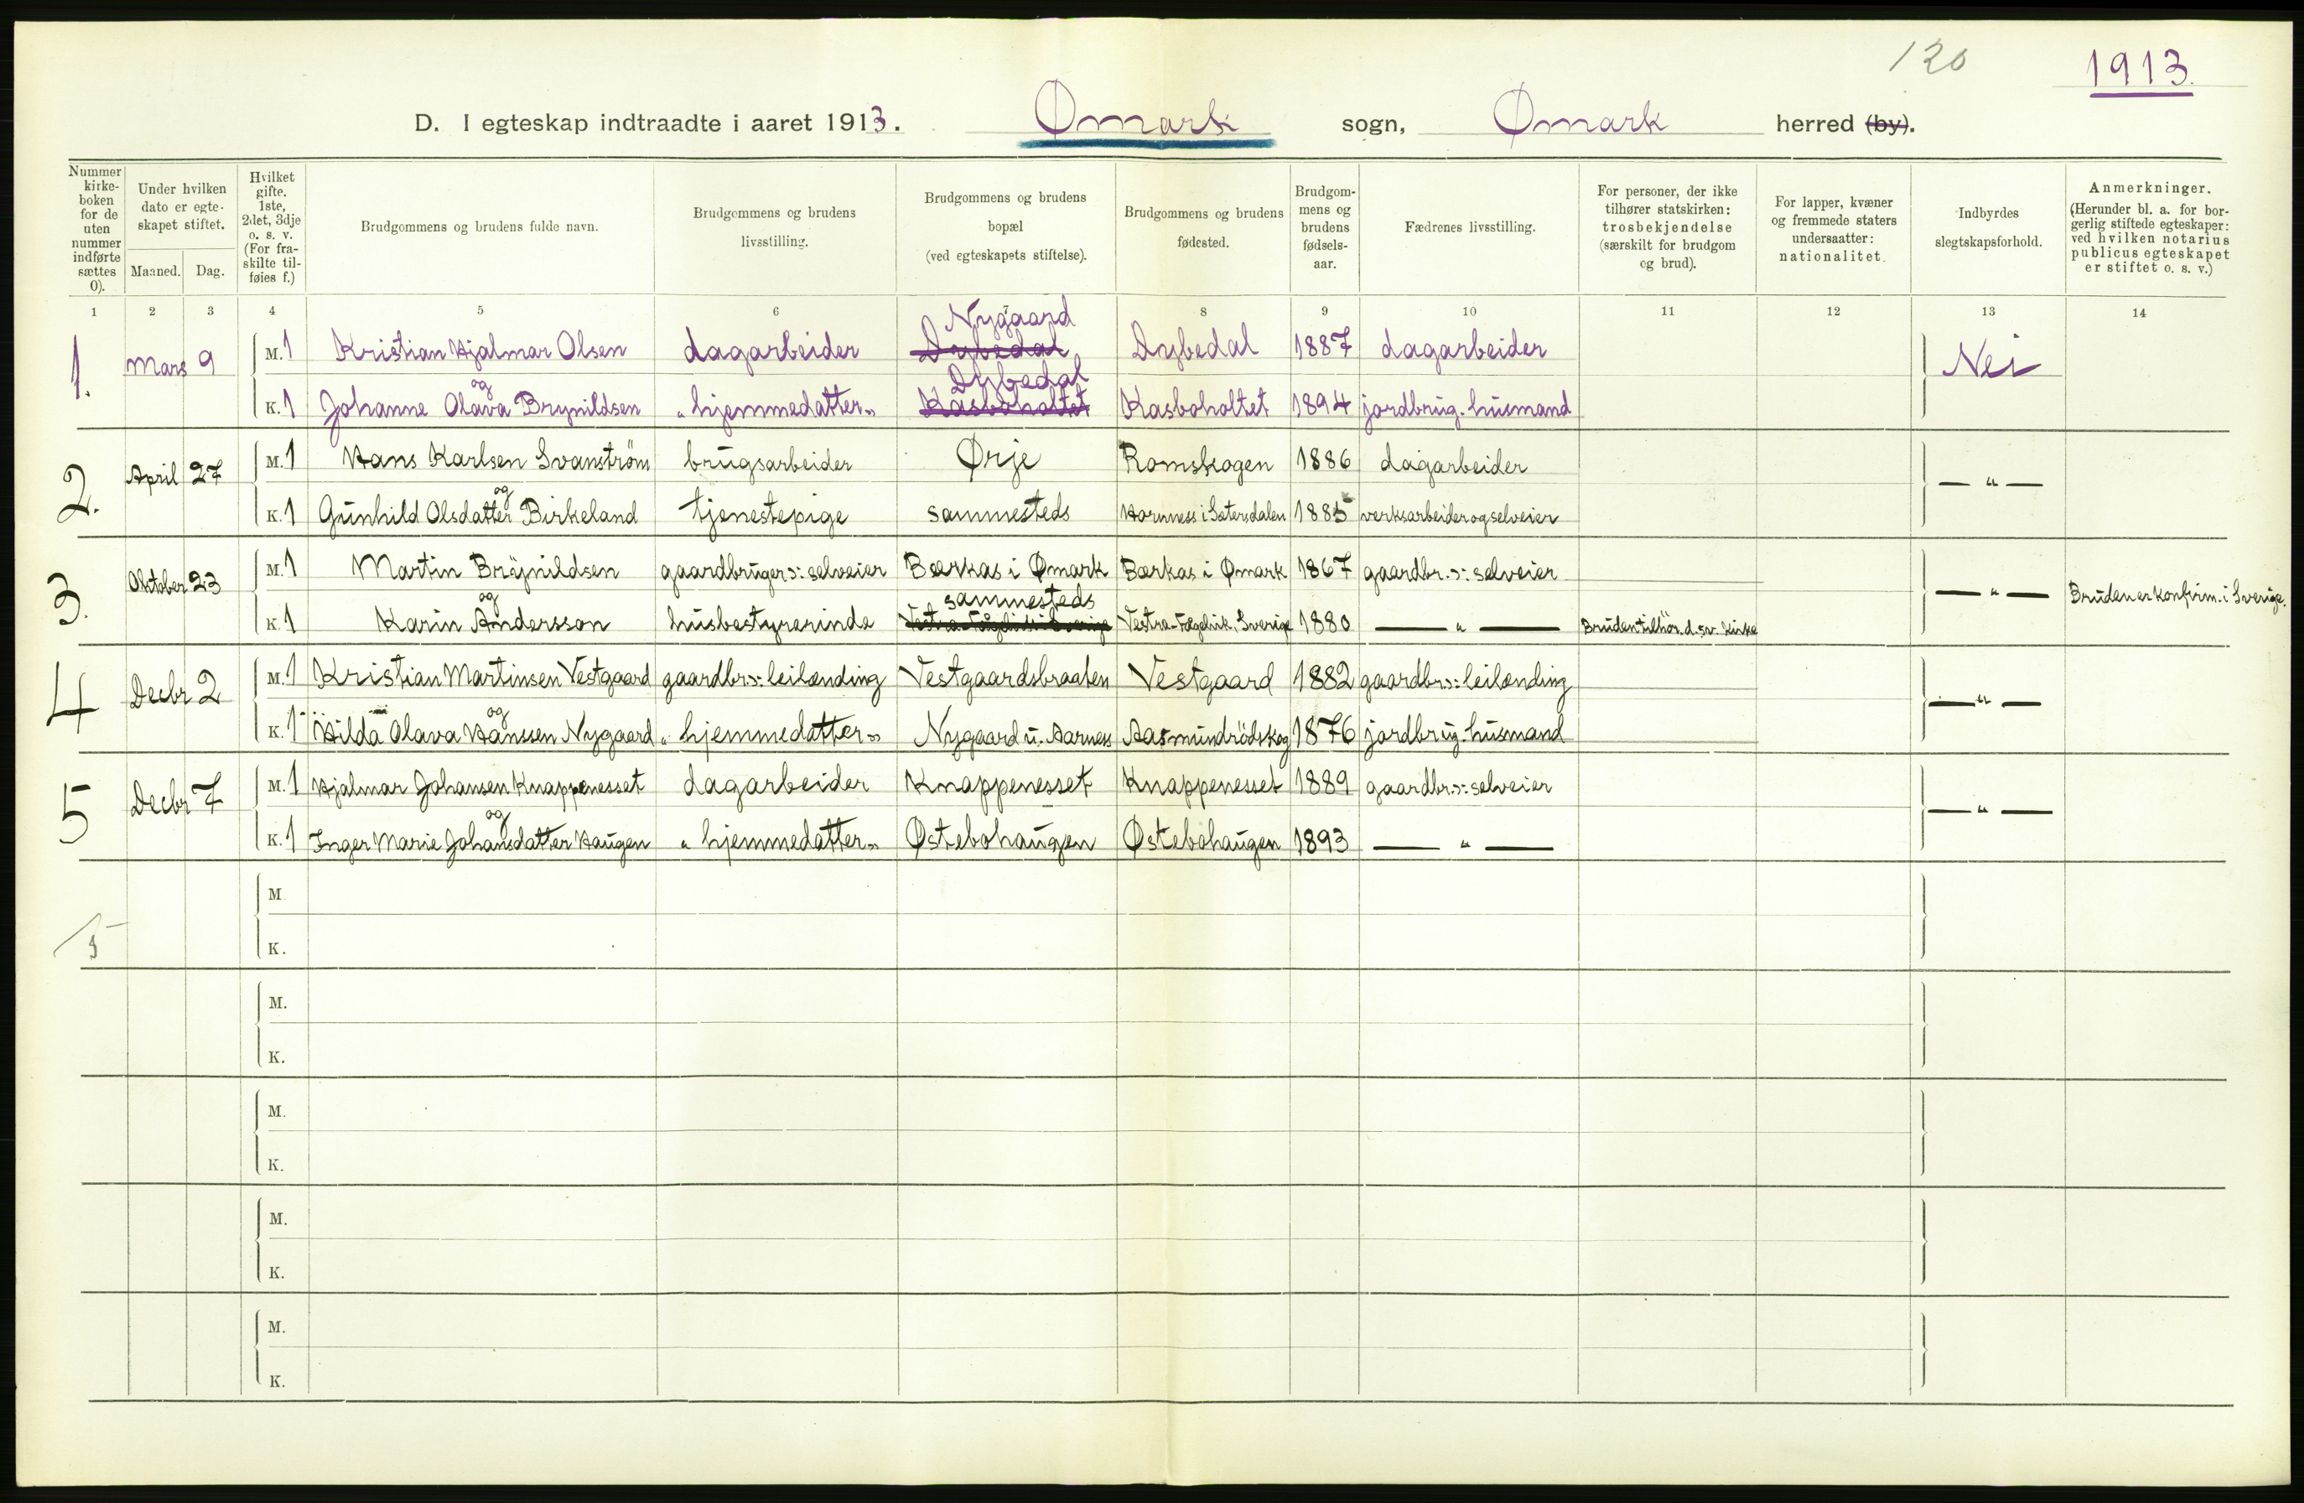 120
1913.
D. I egteskap indtraadte i aaret 1913. Ømark sogn, Ømark herred (by).
Nummer kirke-boken for de uten nummer indførte sættes 0).
Under hvilken dato er egte-skapet stiftet.
Maaned. Dag.
Hvilket gifte. 1ste, 2det, 3dje o. s. v. (For fra-skilte til-føies f.)
Brudgommens og brudens fulde navn.
Brudgommens og brudens livsstilling.
Brudgommens og brudens bopæl (ved egteskapets stiftelse).
Brudgommens og brudens fødested.
Brudgom-mens og brudens fødsels-aar.
Fædrenes livsstilling.
For personer, der ikke tilhører statskirken: trosbekjendelse (særskilt for brudgom og brud).
For lapper, kvæner og fremmede staters undersaatter: nationalitet.
Indbyrdes slegtskapsforhold.
Anmerkninger. (Herunder bl. a. for bor-gerlig stiftede egteskaper: ved hvilken notarius publicus egteskapet er stiftet o. s. v.)
1 2 3 4 5 6 7 8 9 10 11 12 13 14
1. Mars 9 M. 1 Kristian Hjalmar Olsen dagarbeider Dybedal Nygaard Dybedal 1887 dagarbeider Nei
og
K. 1 Johanne Olava Brynildsen „ hjemmedatter „ Kasboholtet Dybedal Kasboholtet 1894 jordbrug. husmand
2. April 27 M. 1 Hans Karlsen Svanström brugsarbeider Ørje Romskogen 1886 dagarbeider — „ —
og
K. 1 Gunhild Olsdatter Birkeland tjenestepige sammesteds Hornness i Sætersdalen 1885 verksarbeider og selveier
3. Oktober 23 M. 1 Martin Brynildsen gaardbruger ɔ: selveier Bærkas i Ømark Bærkas i Ømark 1867 gaardbr. ɔ: selveier — „ — Bruden er konfirm. i Sverige.
og
K. 1 Karin Andersson husbestyrerinde sammesteds Vestra-Fågelvik i Sverige Vestra-Fogelvik, Sverige 1880 — „ — Bruden tilhør. d. sv. kirke
4 Decbr 2 M. 1 Kristian Martinsen Vestgaard gaardbr ɔ: leilænding Vestgaardsbraaten Vestgaard 1882 gaardbr ɔ: leilænding — „ —
og
K. 1 Hilda Olava Hanssen Nygaard „ hjemmedatter „ Nygaard u. Aarness Aasmundrödskog 1876 jordbrug. husmand
5 Decbr 7 M. 1 Hjalmar Johansen Knappenesset dagarbeider Knappenesset Knappenesset 1889 gaardbr. ɔ: selveier — „ —
og
K. 1 Inger Marie Johansdatter Haugen „ hjemmedatter „ Østebohaugen Østebohaugen 1893 — „ —
M.
K.
M.
K.
M.
K.
M.
K.
M.
K.